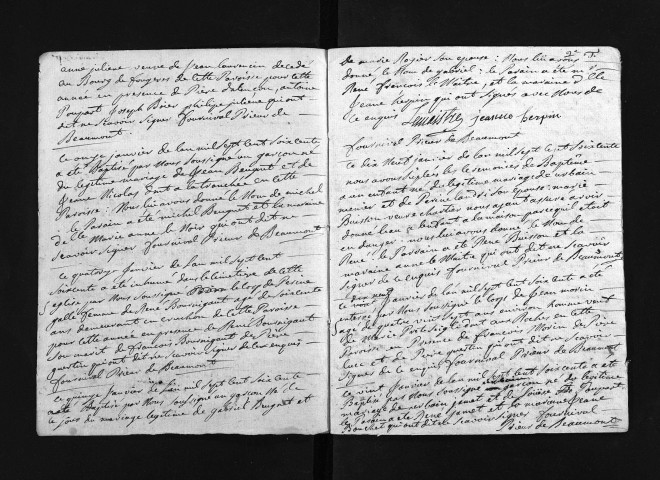 anne juliene veuve de Jean laurencin decedé
au Bourg de fougeres de Cette Paroisse pour cette
année en presence de Pierre antoine
Poupart Joseph Boier philipe juliene qui ont
dit ne scavoir signer fournival Prieur de
Beaumont
ce onze janvier de lan mil sept cent soixante
a eté Baptisé par Nous soussigné un garçon né
du legitime mariage de Jean Beugnet et de
Jeanne Nicolas dont a la tranchée en cette
Paroisse: Nous luy avons donné le Nom de michel
le Parain a eté michel Beugnet et la maraine
Marie anne le Noir qui ont dit ne
scavoir signer fournival Prieur de Beaumont
ce quatorze janvier de lan mil sept cent
soixante a eté inhumé dans le cimetiere de cette
eglise par Nous soussigné le corps de Perine
galle femme de René Boursigaut agé de soixante
ans demeurant en de cette Paroisse
pour cette année en presence de René Boursigaut
son marit de francois Boursigaut de Pierre
questin qui ont dit ne scavoir signer de ce enquis
fournival Prieur de Beaumont
ce quinze janvier de lan mil sept cent soixante
a eté Baptisé par Nous soussigné un garçon né de
ce jour du mariage legitime de gabriel Brugant et
2e f.
de marie Rogier son epouse: Nous luy avons
donné le Nom de gabriel: le Parain a eté
René francois le Maitre et la maraine
Jeane herpin qui ont signés avec Nous de
ce enquis Lemaistre jeanne herpin
fournival Prieur de Beaumont
ce dix Neuf janvier de lan mil sept cent soixante
nous avons suplées les ceremonies de Baptême
a un enfant né du legitime mariage de urbain
menier et de Perine landais son epouse: marie
Buisson veuve chartier nous ayant assuré avoir
donné leau a lenfant a la maison parcequil etoit
en danger: nous luy avons donné le Nom de
René le Parain a eté René Buisson et la
maraine anne le Maitre qui ont dit ne scavoir
signer de ce enquis fournival Prieur de Beaumont
ce janvier de lan mil sept cent soixante a eté
enterré par Nous soussigné le corps de Jean morin
agé de quatre vingt sept ans environ homme veuf
de Marie dont aux Roches en cette
Paroisse en Presence de francois Morin de Pierre
luce et de Pierre questin qui ont dit ne scavoir
signer de ce enquis fournival Prieur de Beaumont
ce vint janvier de lan mil sept cent soixante a eté
Baptisé par Nous soussigné un garcon né de legitime
mariage de urbain janet et de Louise Poupart
le Parain a eté René janet et la maraine jeane
Bouchet qui ont dit ne scavoir signer fournival
Prieur de Beaumont